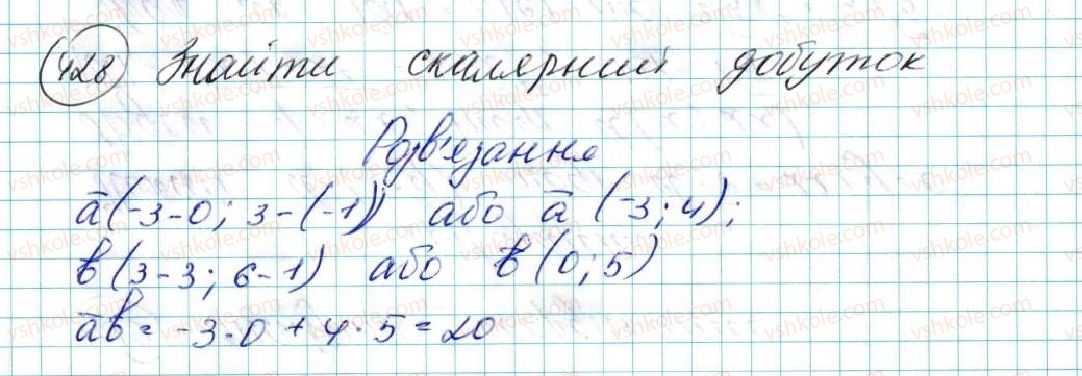 428 Знайти скалярний добуток
Розв'язання
a̅(-3-0; 3-(-1)) або a̅ (-3; 4);
b̅(3-3; 6-1) або b̅(0; 5)
a̅b̅ = -3·0 + 4·5 = 20